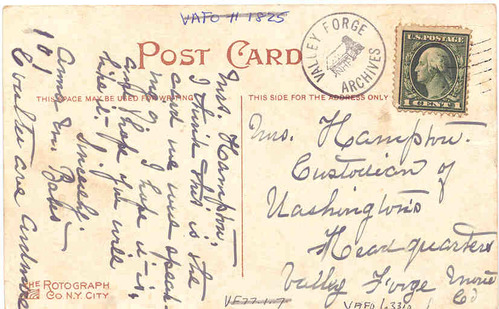 VAFO 11 1825
POST CARD
VALLEY FORGE
ARCHIVES
U.S. POSTAGE
1 CENT 1
THIS SPACE MAY BE USED FOR WRITING
THIS SIDE FOR THE ADDRESS ONLY
Mrs. Hampton.
I think this is the
card we were speak-
ing. I hope it is
and hope you will
like it.
Sincerely.
Anna M. Bates
101
Coulter ave Ardmore
Mrs. Hampton.
Custodian of
Washington's
Headquarters
Vally Forge
Co
THE ROTOGRAPH
CO. N.Y. CITY